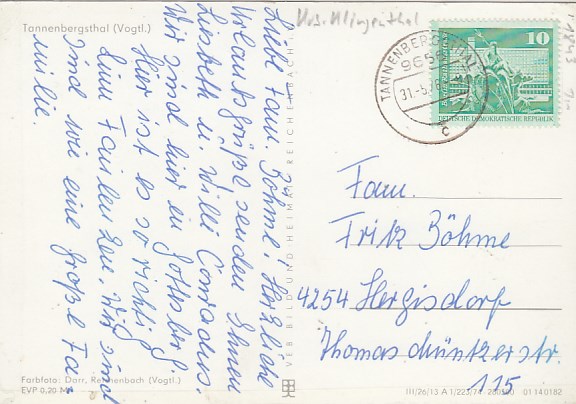 Tannenbergsthal (Vogtl.)
Krs. Klingenthal
Liebe Fam. Böhme! Herzliche
Urlaubsgrüße senden Ihnen
Lisbeth u. Willi Conradus
Wir sind hier in Gottesbg.
Hier ist es so richtig
zum Faulenzen. Wir sind
sind wie eine große Fa-
milie
TANNENBERGSTHAL
9655
31.-5.
c
10
DEUTSCHE DEMOKRATISCHE REPUBLIK
VEB BILD UND HEIMAT REICHENBACH
Fam.
Fritz Böhme
4254 Hergisdorf
Thomas Müntzer str.
115
Farbfoto: Darr, Reichenbach (Vogtl.)
EVP 0,20 M
III/26/13 A 1/223/74 01 14 0182